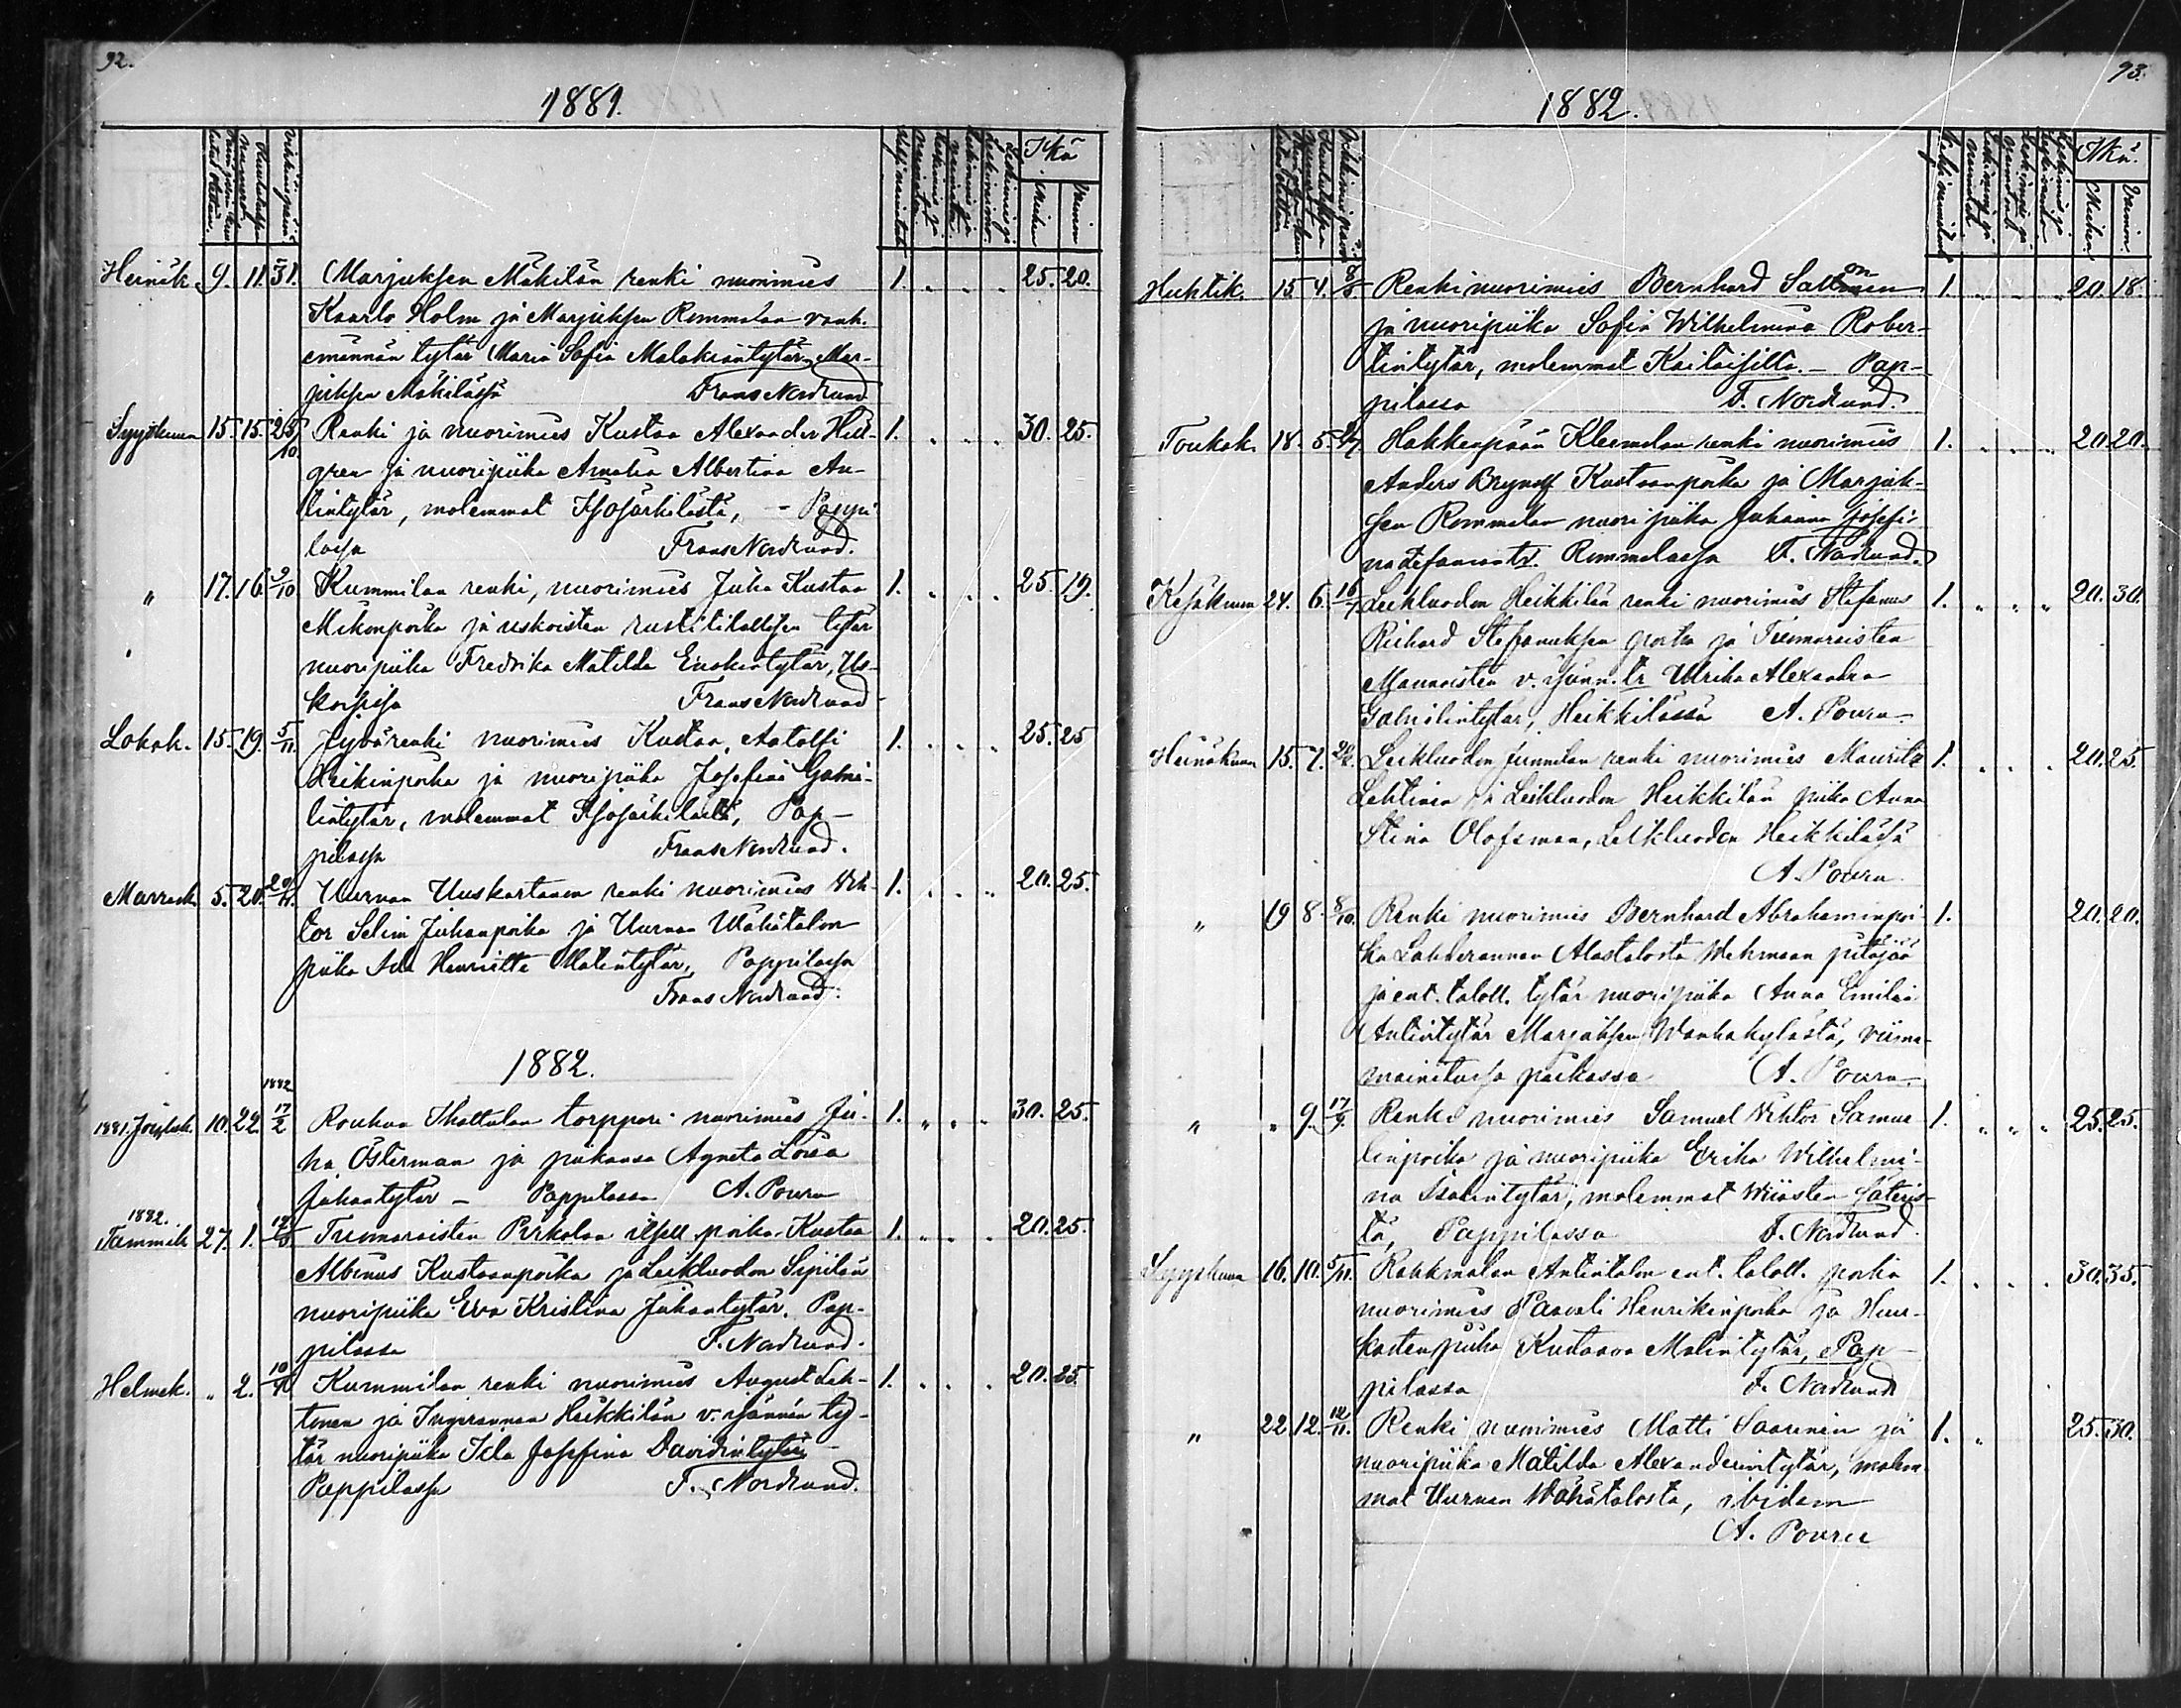 92.
1881.
Ikä
Miehen
Vaimon
Heinäk. 9. 11. 31. Marjuksen Mäkilän renki nuorimies 1. 25. 20.
Kaarlo Holm ja Marjuksen Rommelan vanh.
emännän tytär Maria Sofia Malakiantytär, Mar-
juksen Mäkilässä Frans Nordlund
Syyskuun 15. 15. 25/10. Renki ja nuorimies Kustaa Alexander Hell- 1. 30. 25.
gren ja nuoripiika Amalia Albertina An-
tintytär, molemmat Isosärkilästä, - Pappi-
lassa Frans Nordlund.
" 17. 16. 9/10 Kummilan renki, nuorimies Juha Kustaa 1. 25. 19.
Mikonpoika ja uskoisten rustitilallisen tytär
nuoripiika Fredrika Matilda Enokintytär, Us-
koisissa Frans Nordlund
Lokak. 15. 19. 5/11. Jyvärenki nuorimies Kustaa Aatolfi 1. 25. 25
Heikinpoika ja nuoripiika Josefina Gabrie-
lintytär, molemmat Isosärkilästä, Pap-
pilassa Frans Nordlund.
Marrask. 5. 20. 20/11. Uurnan Uuskartanon renki nuorimies Vik- 1. 20. 25.
tor Selim Juhanpoika ja Uurnan Wähätalon
piika Ida Henriette Matintytär, Pappilassa
Frans Nordlund.
1882.
1882
1881. Jouluk. 10. 22. 17/2 Rouhun torppari nuorimies Ju- 1. 30. 25.
ha Österman ja piikansa Agneta Lovisa
Juhantytär - Pappilassa A. Pouru
1882.
Tammik. 27. 1. Tuomaraisten Pirkolan poika Kustaa 1. 20. 25.
Albinus Kustaanpoika ja Leikluodon Sipilän
nuoripiika Eva Kristina Juhantytär. Pap-
pilassa F. Nordlund.
Helmik. " 2. Kummilan renki nuorimies August Leh- 1. 20. 25.
tonen ja Ingerannan Heikkilän v. isännän ty-
tär nuoripiika Ida Josefina Davidintytär
Pappilassa F. Nordlund.
93.
1882.
Ikä.
Miehen
Vaimon
Huhtik. 15 4. Renki nuorimies Bernhard 1. 20. 18.
ja nuoripiika Sofia Wilhelmina Rober-
tintytär, molemmat Kaitaisilta. - Pap-
pilassa F. Nordlund.
Toukok. 18. 5. Hakkenpään Kleemolan renki nuorimies 1. 20. 20.
Anders Brynolf Kustaanpoika ja Marjuk-
sen Rommelan nuoripiika Juhanna Josefi-
na Rommelassa F. Nordlund.
Kesäkuun 24. 6. 16/7. Leikluodon Heikkilän renki nuorimies Stefanus 1. 20. 30.
Richard Stefanuksen poika ja Tuomaraisten
Mannoisten v. isänn. tr Ulrika Alexandra
Gabrielintytär, Heikkilässä A. Pouru.
Heinäkuun 15. 7. Leikluodon Junnilan renki nuorimies Mauritz 1. 20. 25.
Lehtinen ja Leikluodon Heikkilän piika Anna
Stina Olofsman, Leikluodon Heikkilässä
A. Pouru
" 19 8. 8/10. Renki nuorimies Bernhard Abrahaminpoi- 1. 20. 20.
ka Lahderannan Alastalosta Wehmaan pitäjää
ja ent. taloll. tytär nuoripiika Anna Emilia
Antintytär Marjuksen Wanhakylästä, viime-
mainitussa paikassa A. Pouru.
" " 9. 17/9. Renki nuorimies Samuel Viktor Samue- 1. 25. 25.
linpoika ja nuoripiika Erika Wilhelmi-
na Isakintytär, molemmat Wiiasten Säteris-
tä, Pappilassa F. Nordlund.
Syyskuun 16. 10. 5/11. Rahkmalan Antintalon ent. taloll. poika 1. 30. 35.
nuorimies Paavali Henrikinpoika ja
piika Kustaava Matintytär, Pap-
pilassa F. Nordlund
" 22. 12. 12/11. Renki nuorimies Matti Saarinen ja 1. 25. 30.
nuoripiika Matilda Alexanderintytär, molem-
mat Uurnan Wähätalosta, ibidem
A. Pouru